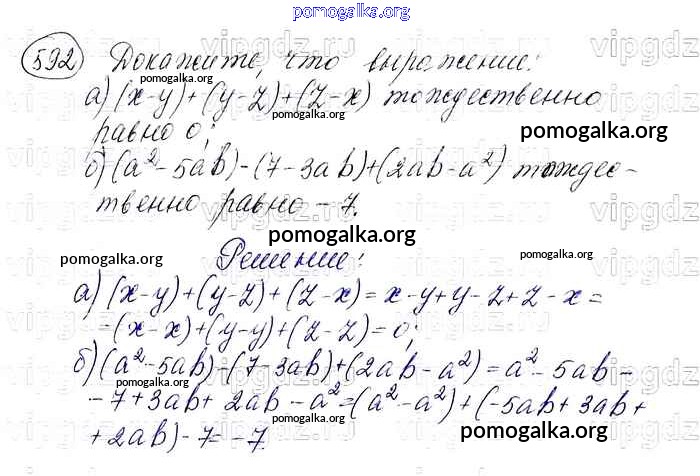 pomogalka.org
592 Докажите, что выражение:
pomogalka.org
а) (x-y)+(y-z)+(z-x) тождественно
равно 0;
pomogalka.org
б) (a²-5ab)-(7-3ab)+(2ab-a²) тождес-
твенно равно -7.
pomogalka.org
Решение:
pomogalka.org
pomogalka.org
а) (x-y)+(y-z)+(z-x)=x-y+y-z+z-x=
=(x-x)+(y-y)+(z-z)=0;
б) (a²-5ab)-(7-3ab)+(2ab-a²)=a²-5ab-
pomogalka.org
-7+3ab+2ab-a²=(a²-a²)+(-5ab+3ab+
pomogalka.org
+2ab)-7=-7.
pomogalka.org
vipgdz.ru